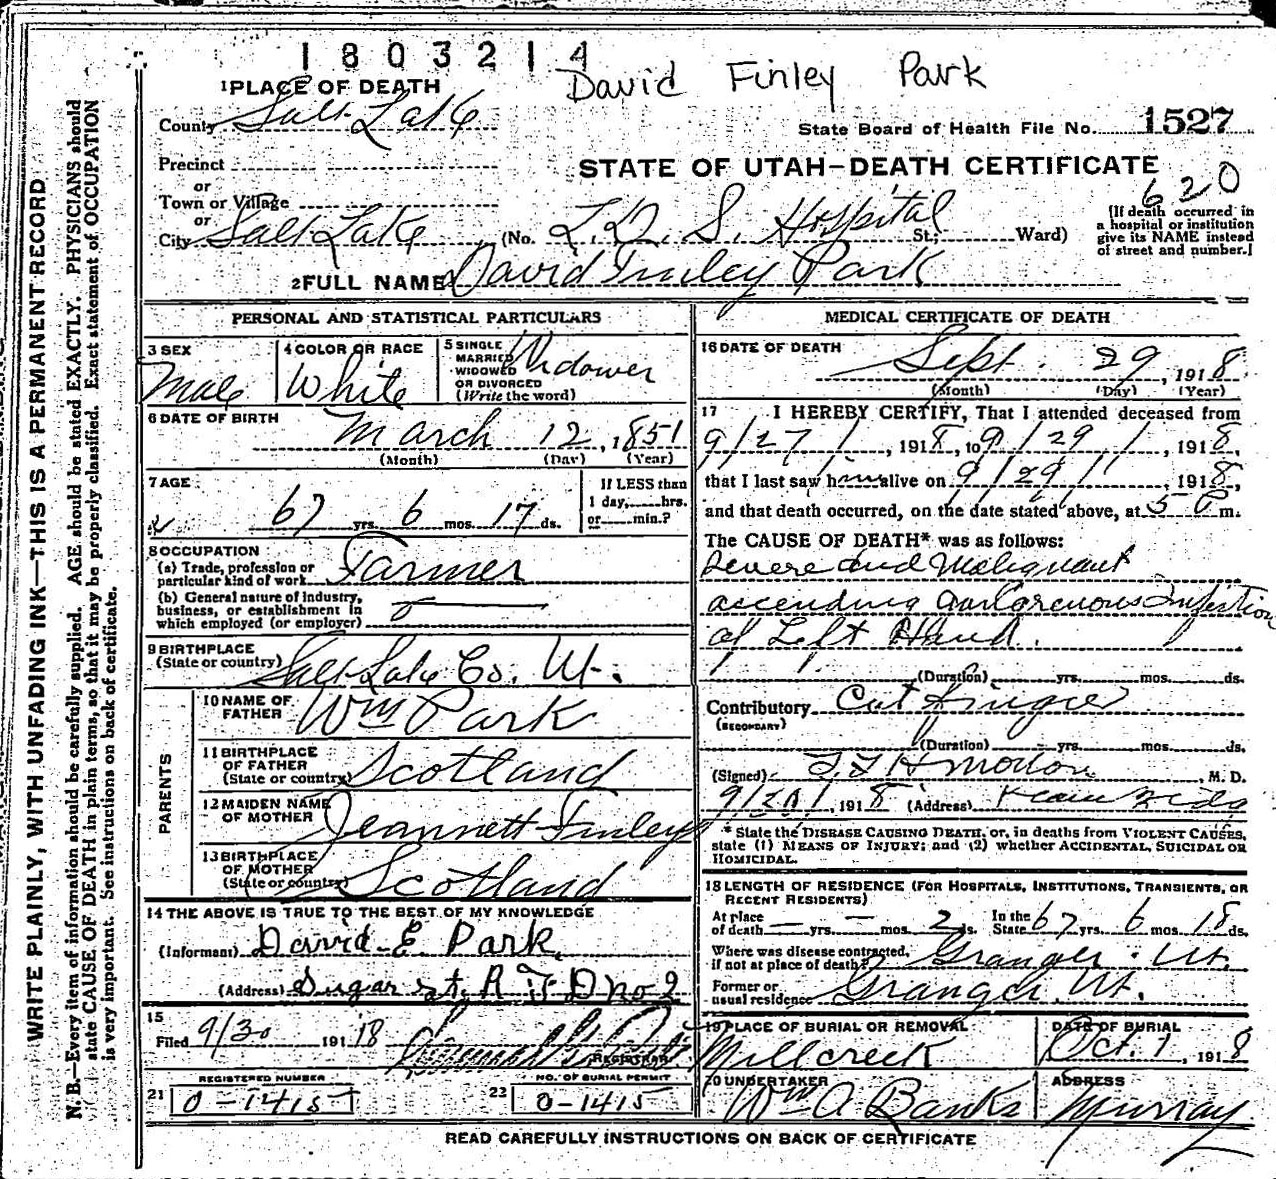 1803214
David Finley Park
1 PLACE OF DEATH
County Salt Lake
State Board of Health File No. 1527
Precinct
STATE OF UTAH—DEATH CERTIFICATE
620
or
Town or Village
or
City Salt Lake (No. L.D.S. Hospital St.; Ward)
[If death occurred in
a hospital or institution
give its NAME instead
of street and number.]
2 FULL NAME David Finley Park
PERSONAL AND STATISTICAL PARTICULARS
3 SEX
Male
4 COLOR OR RACE
White
5 SINGLE
MARRIED
WIDOWED
OR DIVORCED
(Write the word)
Widower
6 DATE OF BIRTH
March 12, 1851
(Month) (Day) (Year)
7 AGE
67 yrs. 6 mos. 17 ds.
If LESS than
1 day, hrs.
or min.?
8 OCCUPATION
(a) Trade, profession or
particular kind of work Farmer
(b) General nature of industry,
business, or establishment in
which employed (or employer)
9 BIRTHPLACE
(State or country) Salt Lake Co. Ut.
PARENTS
10 NAME OF
FATHER Wm Park
11 BIRTHPLACE
OF FATHER
(State or country) Scotland
12 MAIDEN NAME
OF MOTHER Jeannett Finley
13 BIRTHPLACE
OF MOTHER
(State or country) Scotland
14 THE ABOVE IS TRUE TO THE BEST OF MY KNOWLEDGE
(Informant) David E. Park
(Address) Sugar St. R F D no 2
15
Filed 9/30 1918
REGISTRAR
REGISTERED NUMBER
21 0-1415
NO. OF BURIAL PERMIT
22 0-1415
MEDICAL CERTIFICATE OF DEATH
16 DATE OF DEATH
Sept. 29, 1918
(Month) (Day) (Year)
17 I HEREBY CERTIFY, That I attended deceased from
9/27/, 1918, to 9/29/, 1918,
that I last saw him alive on 9/29/, 1918,
and that death occurred, on the date stated above, at 5 m.
The CAUSE OF DEATH* was as follows:
Severe and Malignant
ascending Gangrenous Infection
of Left Hand.
(Duration) yrs. mos. ds.
Contributory Cut Finger
(SECONDARY)
(Duration) yrs. mos. ds.
(Signed) , M. D.
, 1918 (Address)
* State the DISEASE CAUSING DEATH, or, in deaths from VIOLENT CAUSES,
state (1) MEANS OF INJURY; and (2) whether ACCIDENTAL, SUICIDAL OR
HOMICIDAL.
18 LENGTH OF RESIDENCE (FOR HOSPITALS, INSTITUTIONS, TRANSIENTS, OR
RECENT RESIDENTS)
At place
of death — yrs. — mos. 2 ds.
In the
State 67 yrs. 6 mos. 18 ds.
Where was disease contracted,
if not at place of death? Granger Ut.
Former or
usual residence Granger Ut.
19 PLACE OF BURIAL OR REMOVAL
Millcreek
DATE OF BURIAL
Oct. 1, 1918
20 UNDERTAKER
Wm O. Banks
ADDRESS
Murray
READ CAREFULLY INSTRUCTIONS ON BACK OF CERTIFICATE
WRITE PLAINLY, WITH UNFADING INK—THIS IS A PERMANENT RECORD
N. B.—Every item of information should be carefully supplied. AGE should be stated EXACTLY. PHYSICIANS should
state CAUSE OF DEATH in plain terms, so that it may be properly classified. Exact statement of OCCUPATION
is very important. See instructions on back of certificate.